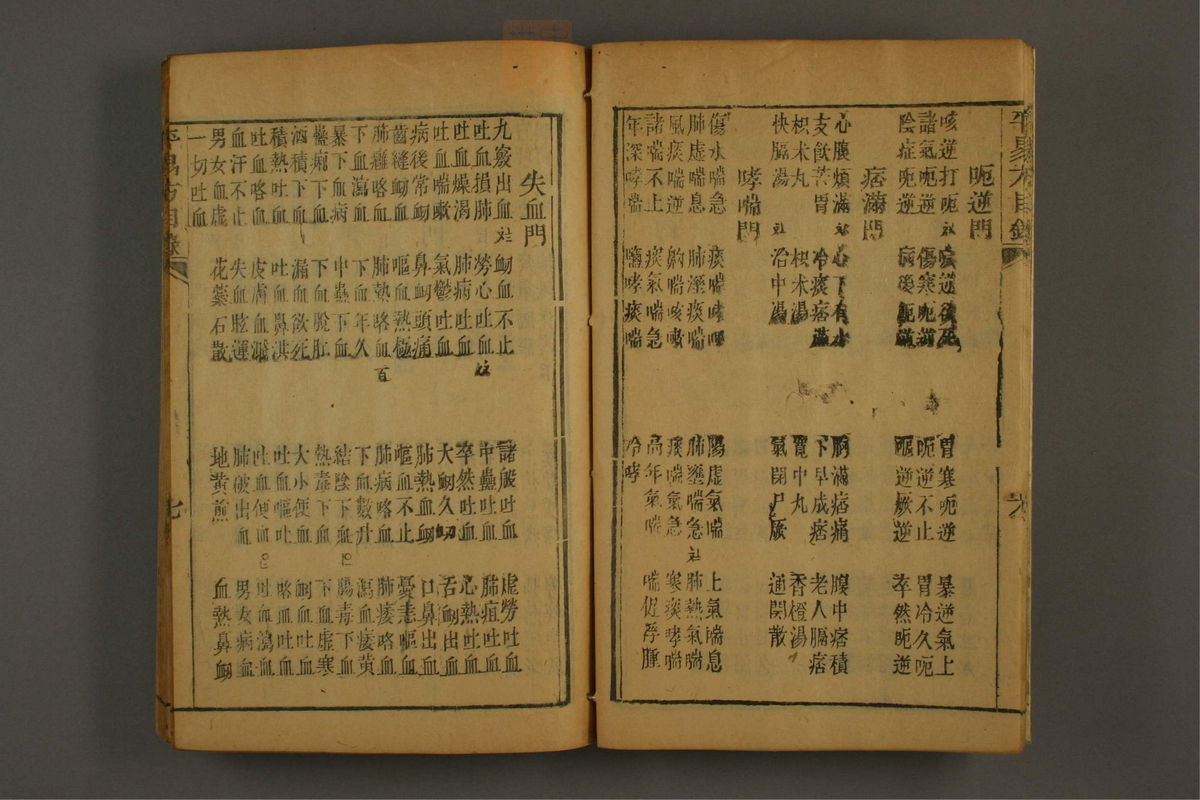 平易方目錄
呃逆門
咳逆打呃 痰逆欲死 胃寒呃逆 暴逆氣上
諸氣呃逆 傷寒呃逆 呃逆不止 胃冷久呃
陰症呃逆 病後呃逆 嘔逆厥逆 卒然呃逆
痞滿門
心腹煩滿 心下有水 胸滿痞痛 腹中痞積
支飲苦冒 冷痰痞滿 下早成痞 老人膈痞
枳朮丸 枳朮湯 寬中丸 香橙湯
快膈湯 治中湯 氣閉尸厥 通關散
哮喘門
傷水喘急 痰喘哮喘 陽虛氣喘 上氣喘息
肺虛喘息 肺溼痰喘 肺壅喘急 肺熱氣喘
風痰喘逆 齁喘咳嗽 痰喘氣急 寒痰哮喘
諸喘不上 痰氣喘急 高年氣喘 喘促浮腫
年深哮喘 哮痰喘 冷哮
失血門
九竅出血 衄血不止 諸般吐血 虛勞吐血
吐血損肺 勞心吐血 中蠱吐血 肺疽吐血
吐血燥渴 肺病吐血 卒然吐血 心熱吐血
吐血喘嗽 氣鬱吐血 大衄久衄 舌衄出血
病後常衄 鼻衄頭痛 肺熱血衄 口鼻出血
齒縫衄血 嘔血熱極 嘔血不止 憂恚嘔血
肺癰咯血 肺熱咯血 肺病咯血 肺痿咯血
下血瀉血 下血年久 下血數升 瀉血痿黃
暴下血病 中蠱下血 結陰下血 腸毒下血
蠱痢下血 下血脫肛 熱毒下血 下血虛寒
酒積下血 漏血欲死 大小便血 衄血吐血
積熱吐血 吐血鼻洪 吐血嘔吐 咯血吐血
吐血咯血 皮膚血濺 吐血便血 吐血瀉血
血汗不止 失血眩運 肺破出血 男女病血
男女血虛 花蘂石散 地黃煎 血熱鼻衄
一切吐血
平易方目錄 七